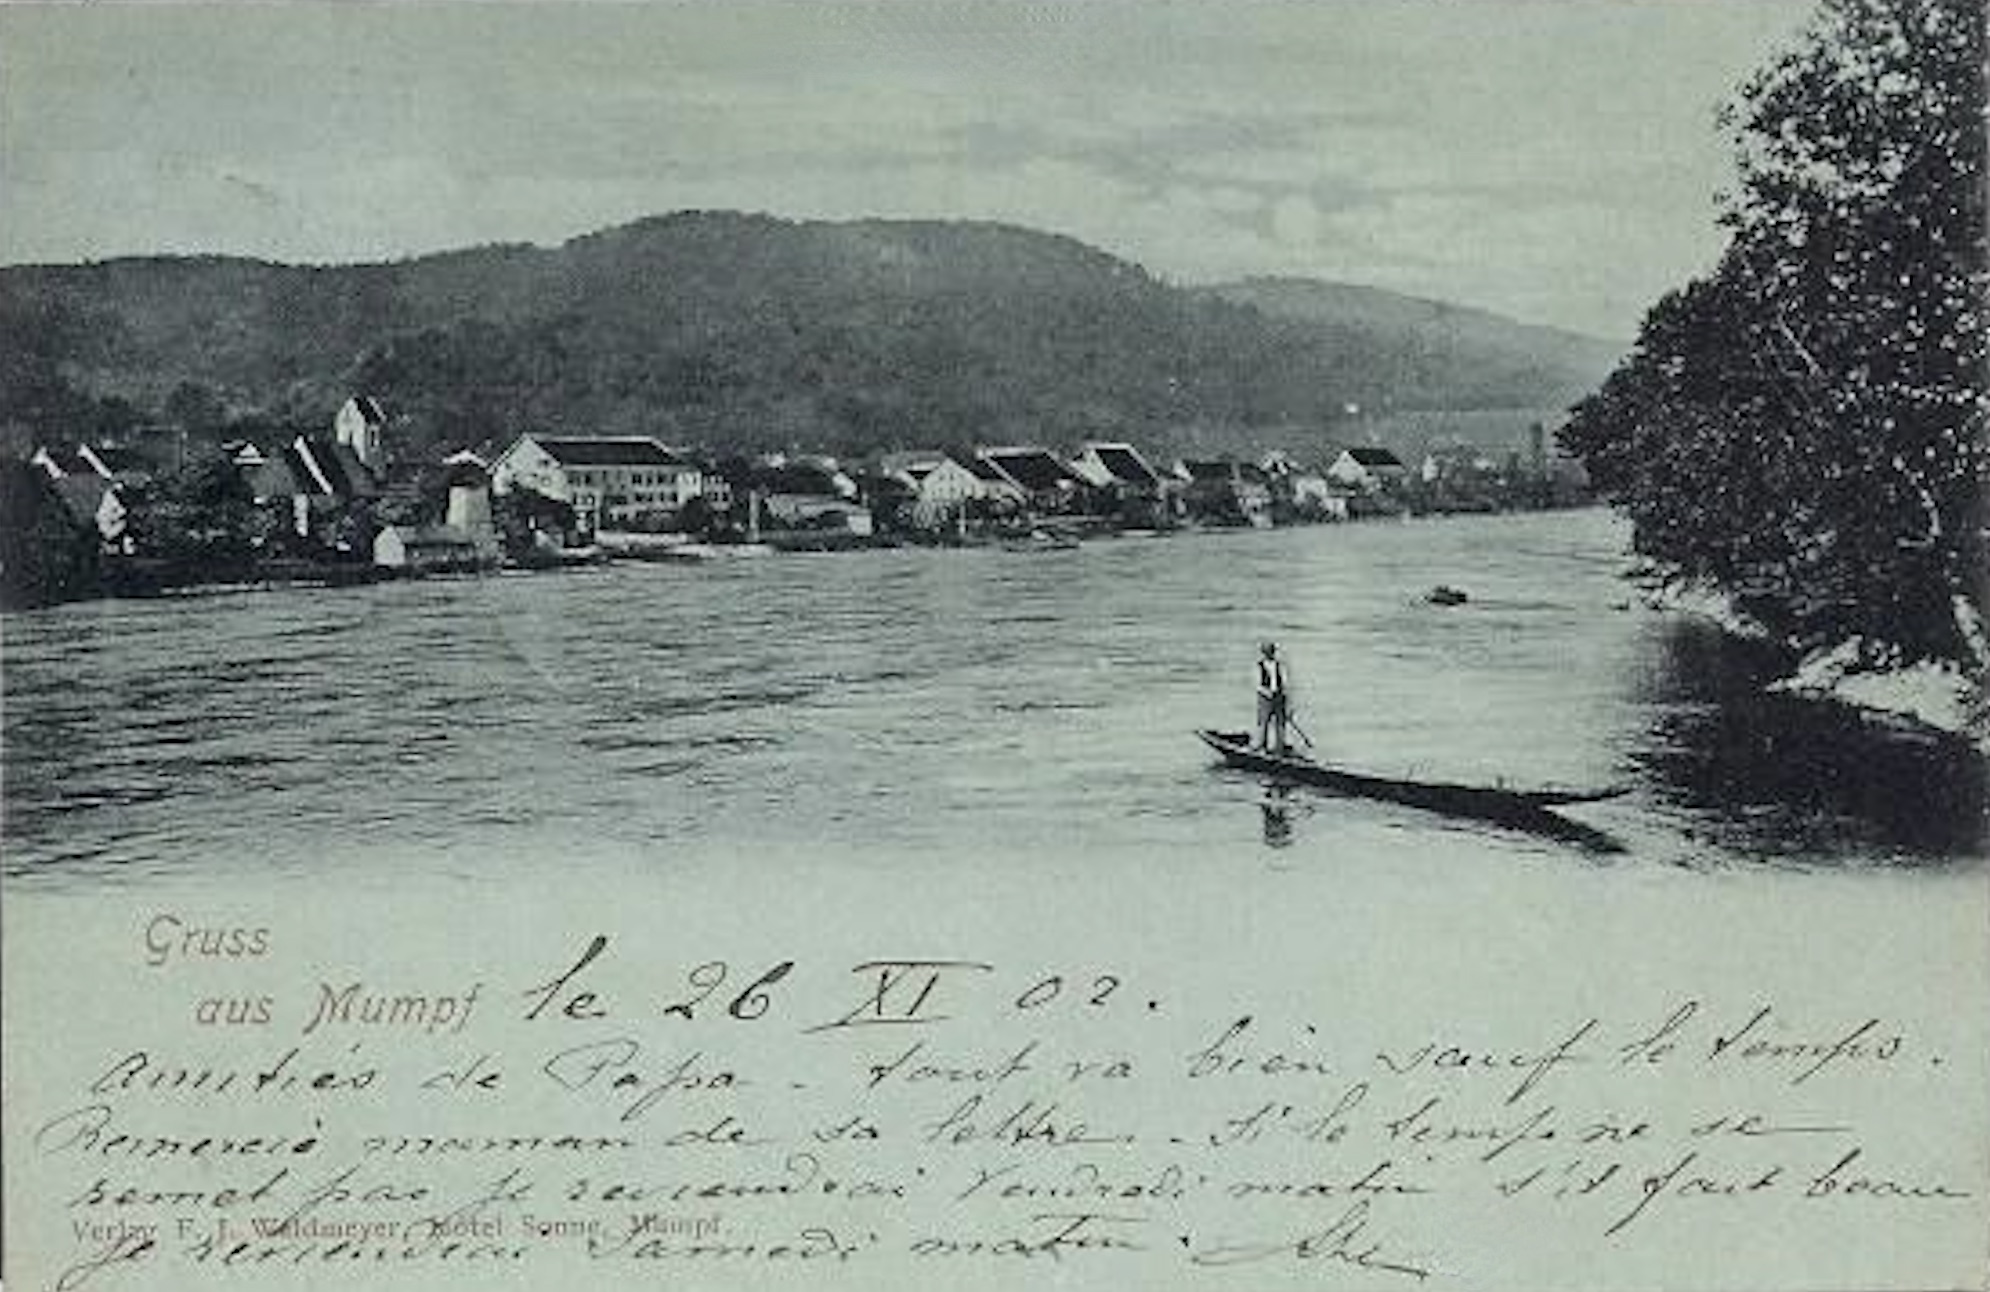 Gruss
aus Mumpf le 26 XI 02.
Amitiés de Papa - tout va bien sauf le temps.
Remercie maman de sa lettre. - Si le temps ne se
remet pas je reviendrai Vendredi matin s'il fait beau
Verlag F. J. Waldmeyer, Hôtel Sonne, Mumpf.
je reviendrai Samedi matin.